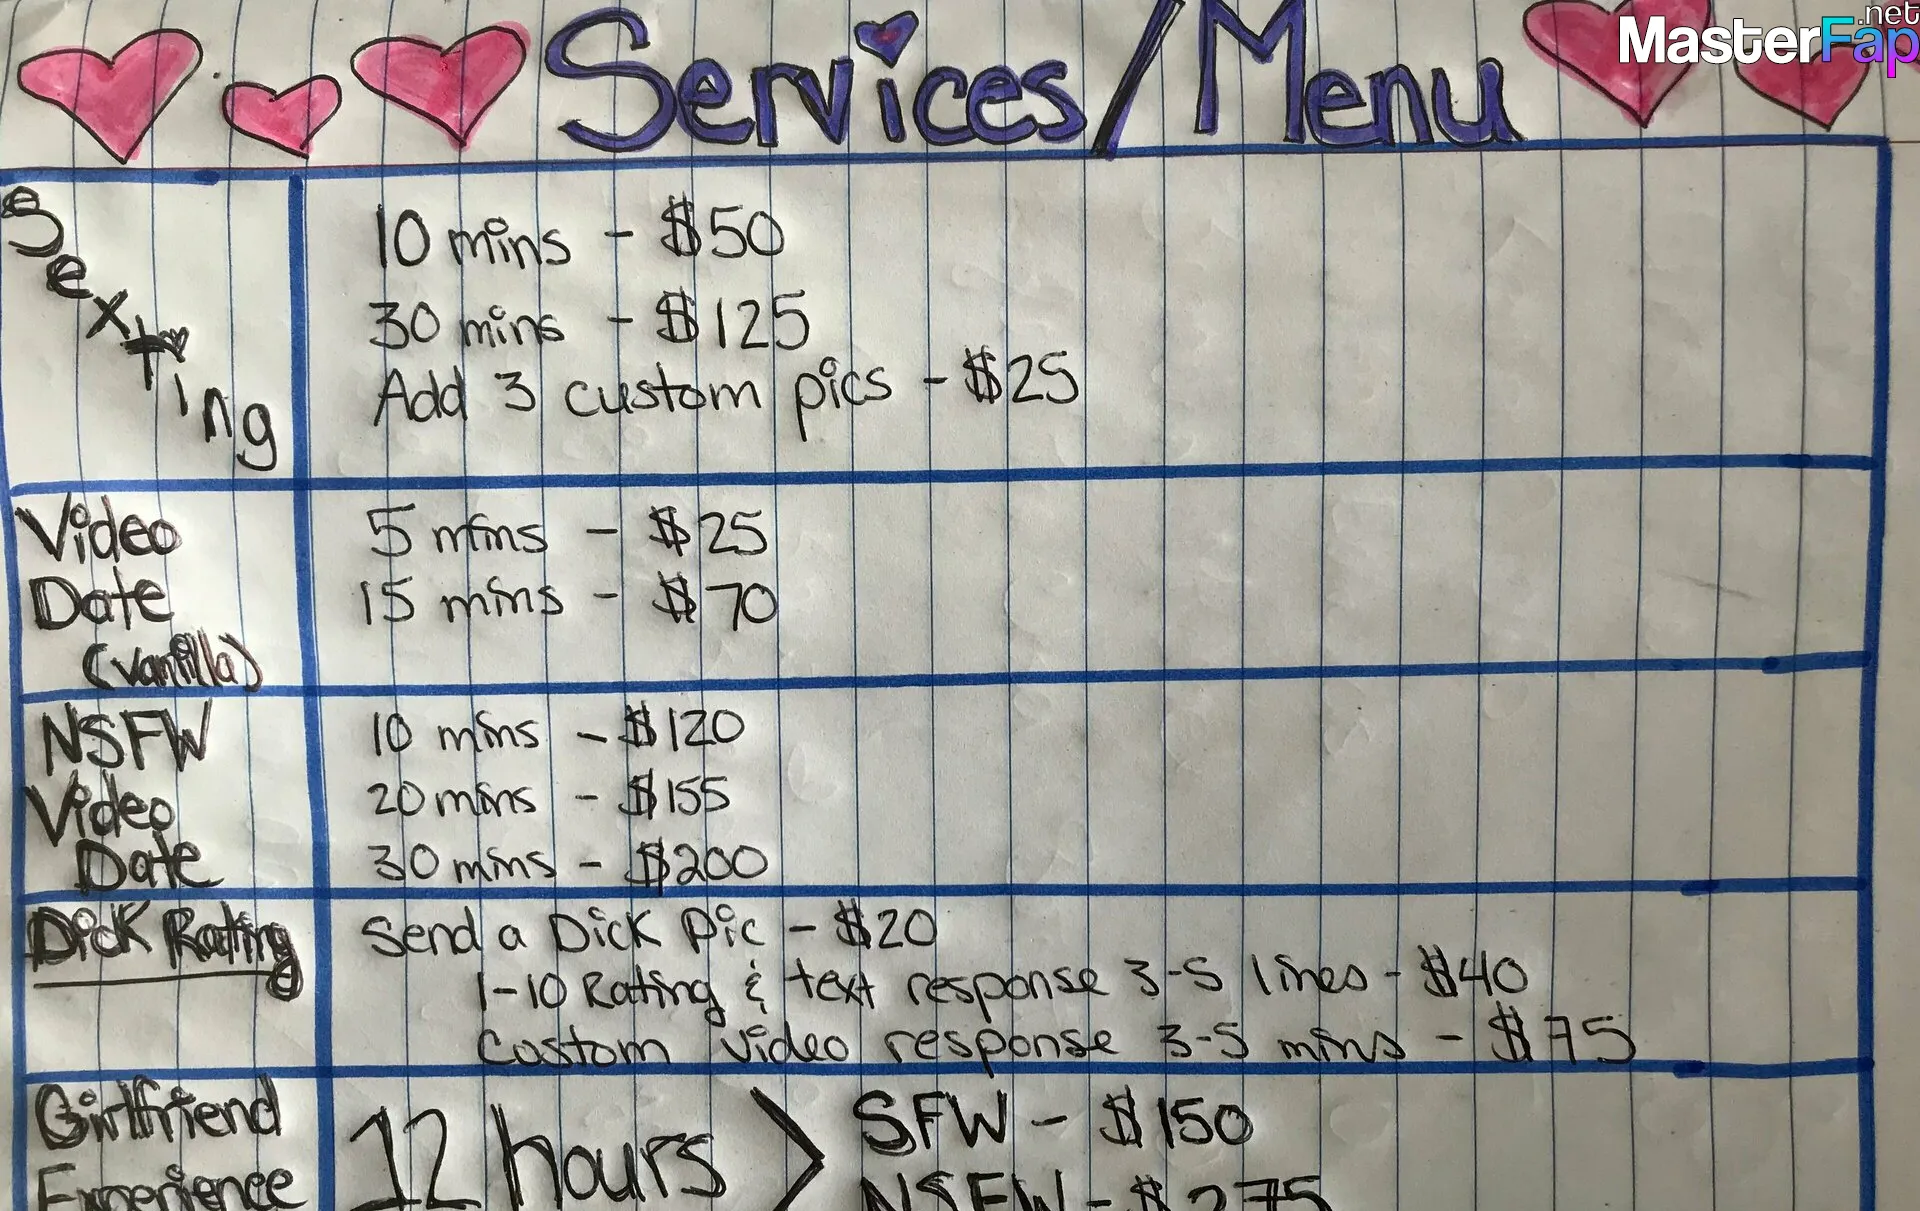 Services/Menu
MasterFap.net
Sexting
10 mins - $50
30 mins - $125
Add 3 custom pics - $25
Video
Date
(vanilla)
5 mins - $25
15 mins - $70
NSFW
Video
Date
10 mins - $120
20 mins - $155
30 mins - $200
Dick Rating
Send a Dick Pic - $20
1-10 Rating & text response 3-5 lines - $40
Custom video response 3-5 mins - $75
Girlfriend
Experience
12 hours >
SFW - $150
NSFW - $275